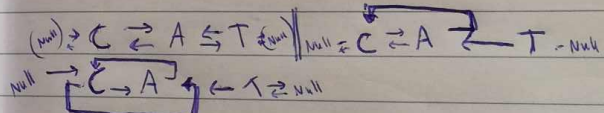 (Null) ⇄ C ⇄ A ⇆ T ⇄ (Null) || Null ⇄ C ⇄ A ← T - Null
Null → C → A ← T ⇄ Null